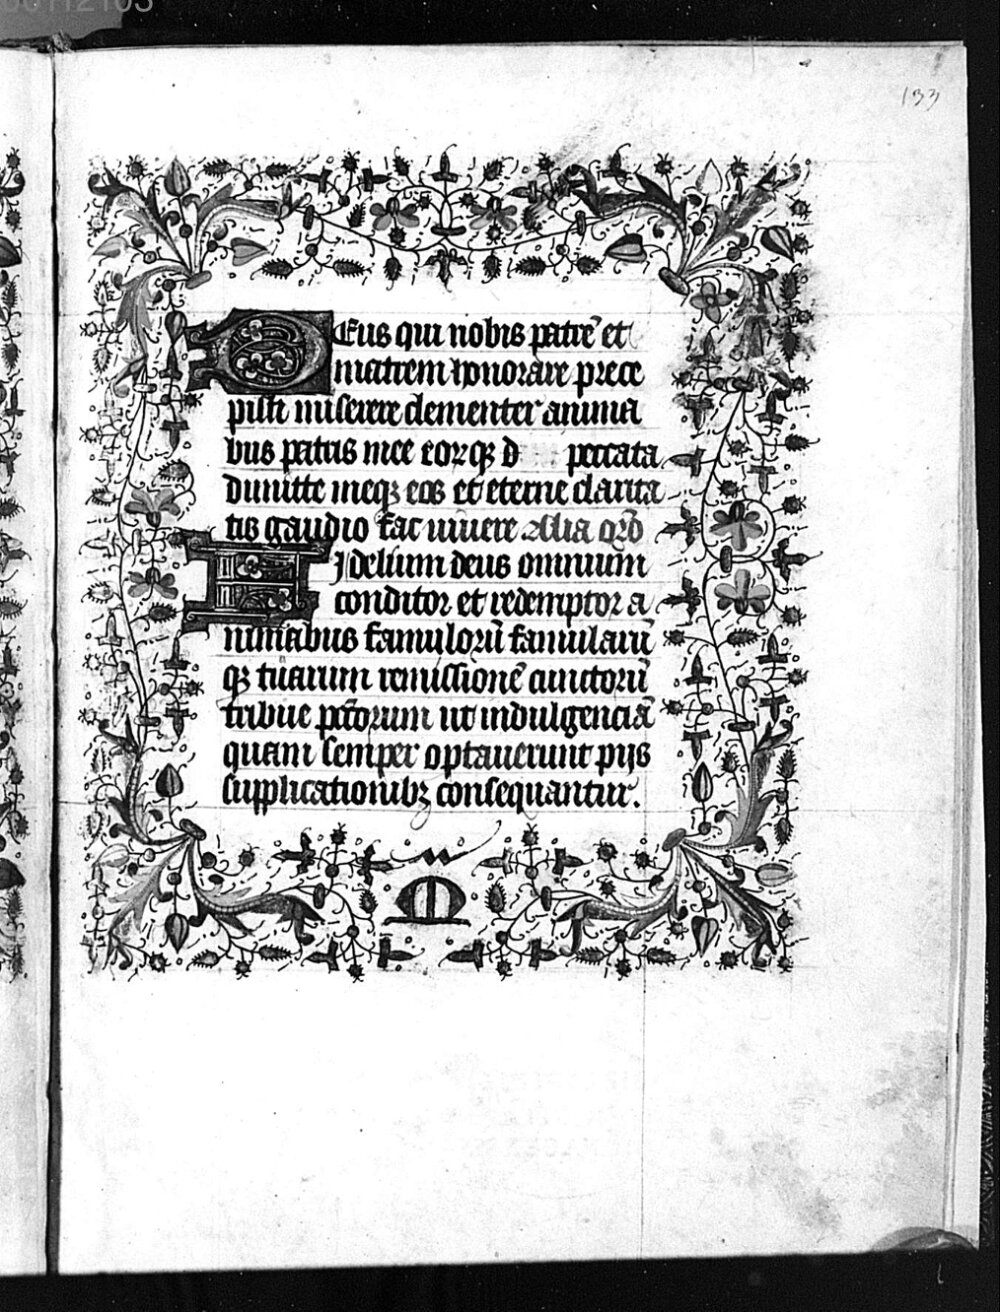 133
DEus qui nobis patrē et
matrem honorare prece
pisti miserere clementer anima
bus patris mee eorqꝫ d peccata
dimitte meqꝫ eos et eterne clarita
tis gaudio fac viuere Alia orō
FIdelium deus omnium
conditor et redemptor a
nimabus famulorū famularū
qꝫ tuarum remissionē cunctorū
tribue pctōrum ut indulgenciā
quam semper optauerunt pijs
supplicationibꝫ consequantur.
M